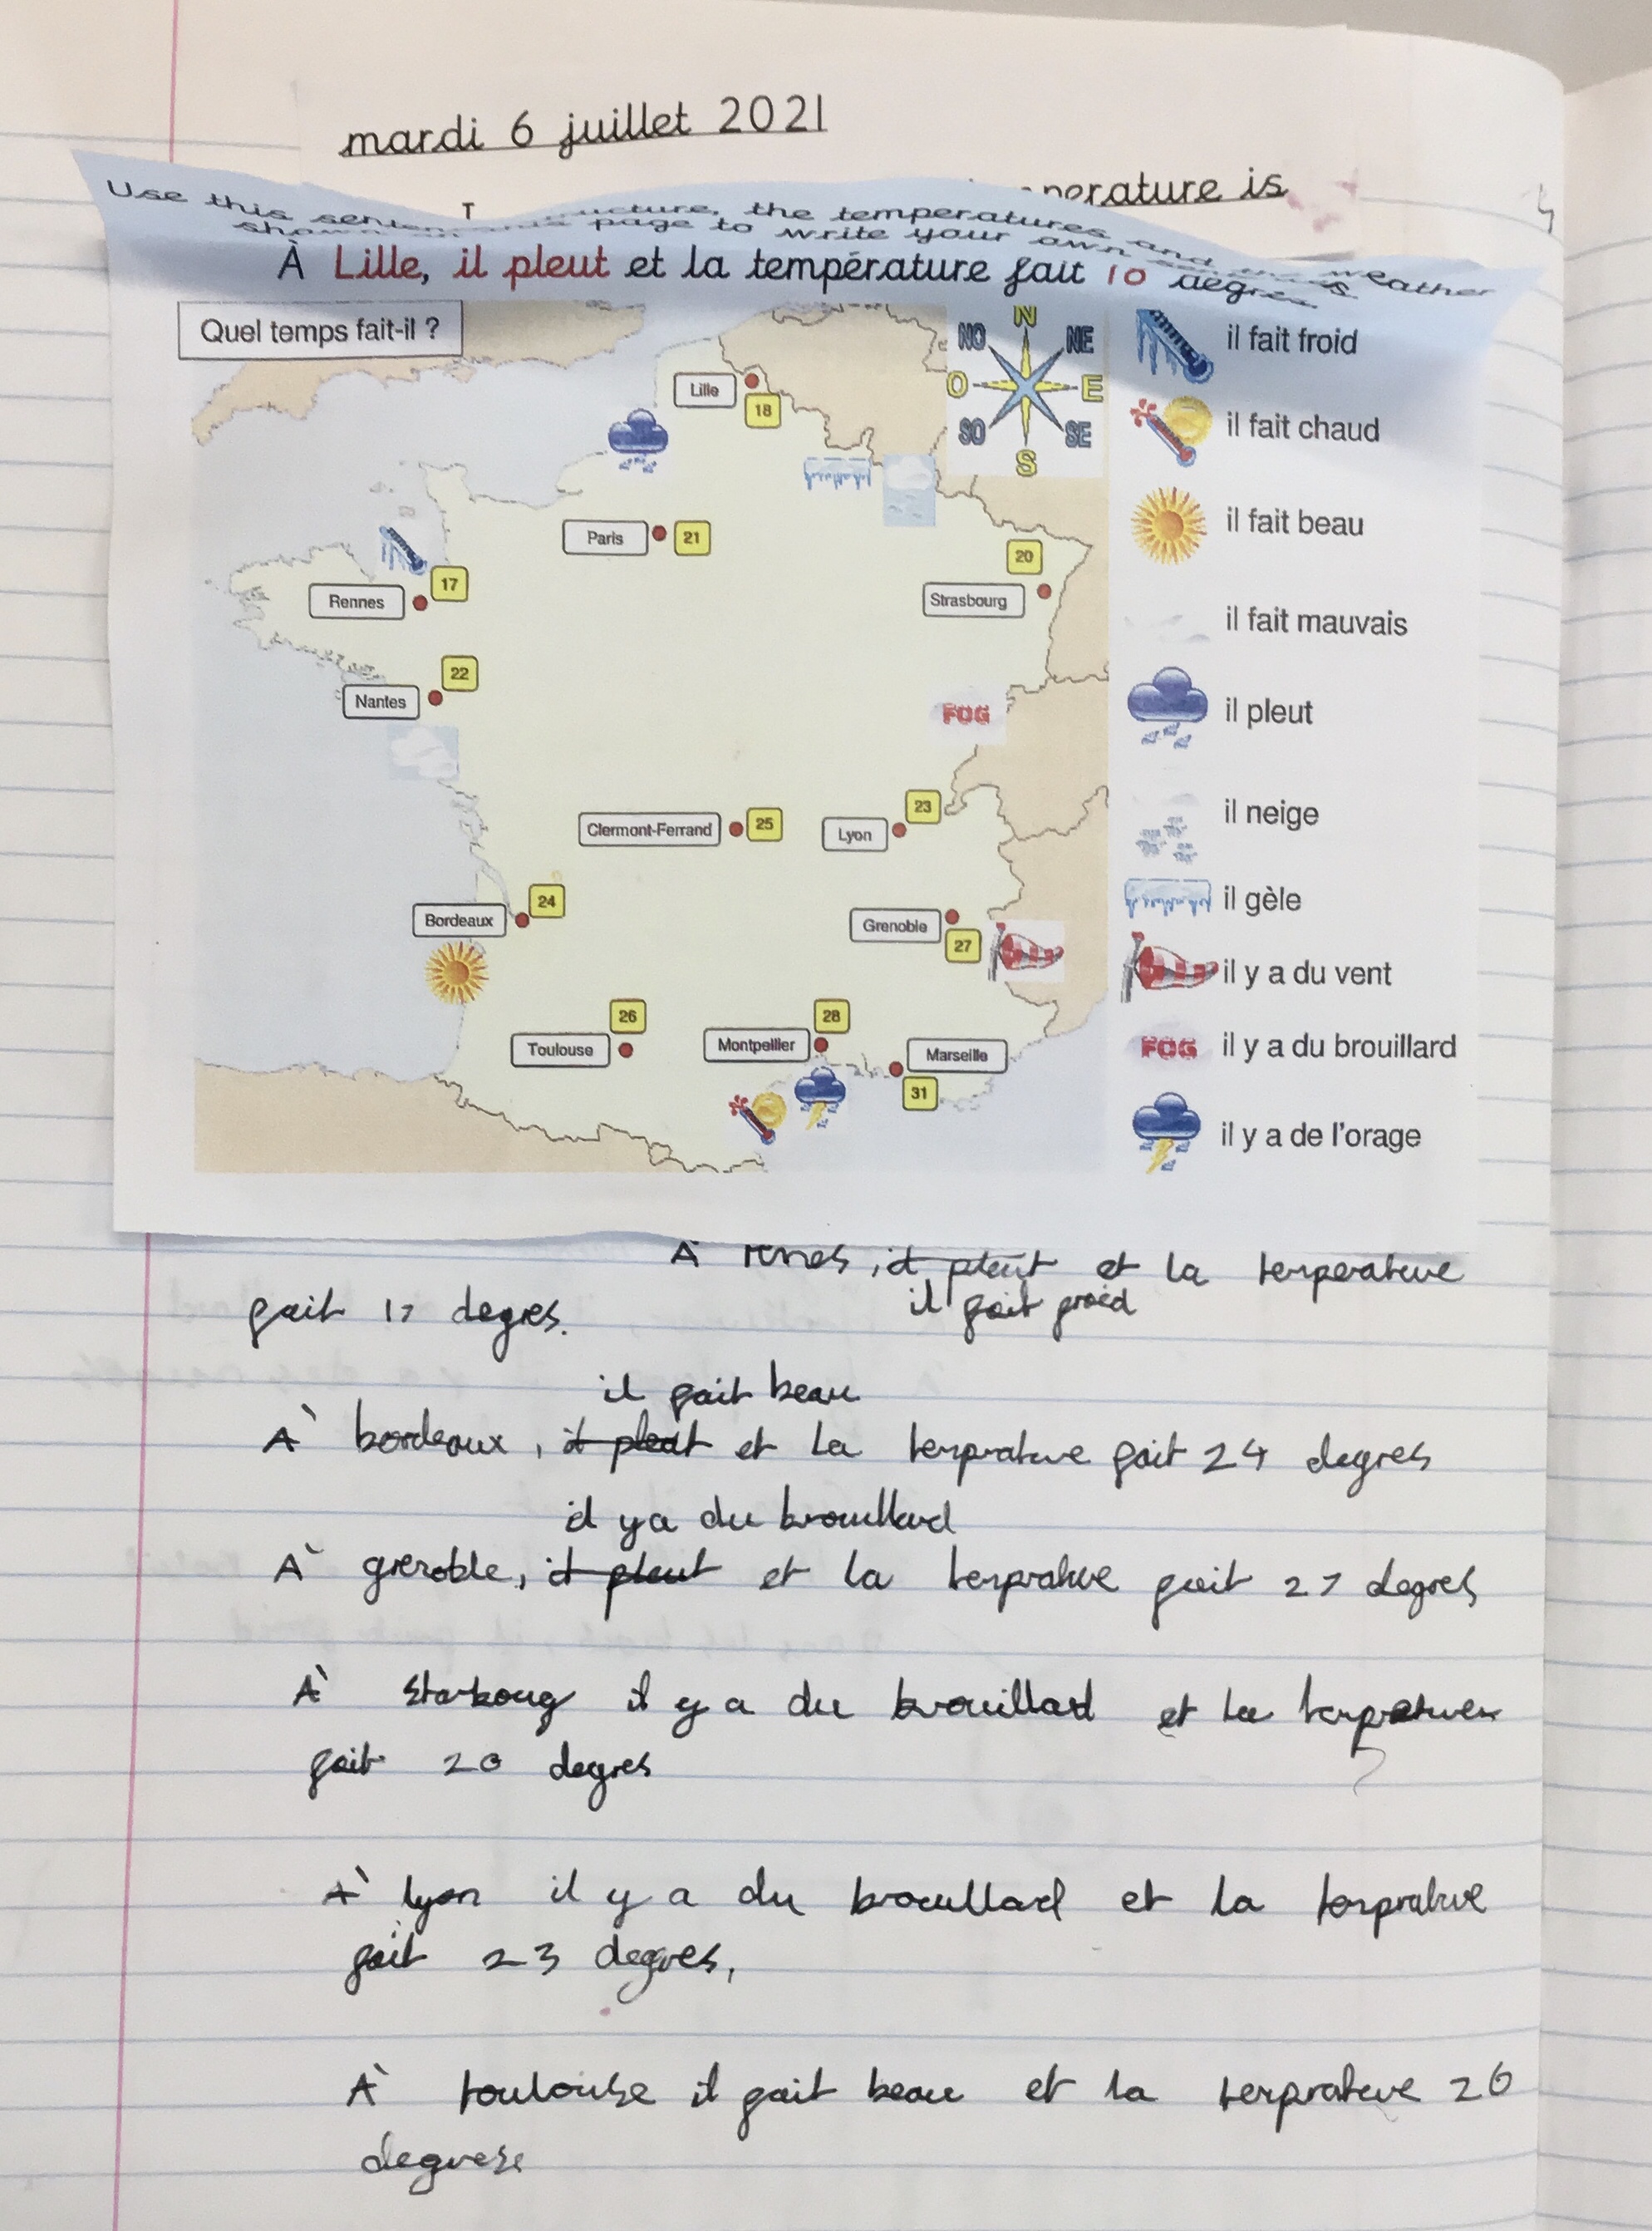 mardi 6 juillet 2021
perature is
Use this ucture, the temperatures and weather
page to write your own
À Lille, il pleut et la température fait 10 degrés
Quel temps fait-il ?
N
NO NE
O E
SO SE
S
Lille
18
Paris 21
20
Strasbourg
17
Rennes
22
Nantes
FOG
Clermont-Ferrand 25
23
Lyon
24
Bordeaux
Grenoble
27
26
Toulouse
28
Montpellier
Marseille
31
il fait froid
il fait chaud
il fait beau
il fait mauvais
il pleut
il neige
il gèle
il y a du vent
FOG il y a du brouillard
il y a de l'orage
A renes, il pleut et la temperature
il fait froid
fait 17 degres.
il fait beau
À bordeaux, il pleut et la temprature fait 24 degres
il ya du brouillard
À grenoble, il pleut et la temprature fait 27 degres
À starboug il y a du brouillard et la
fait 20 degres
À lyon il y a du brouillard et la temprature
fait 23 degres,
À toulouse il fait beau et la temprature 26